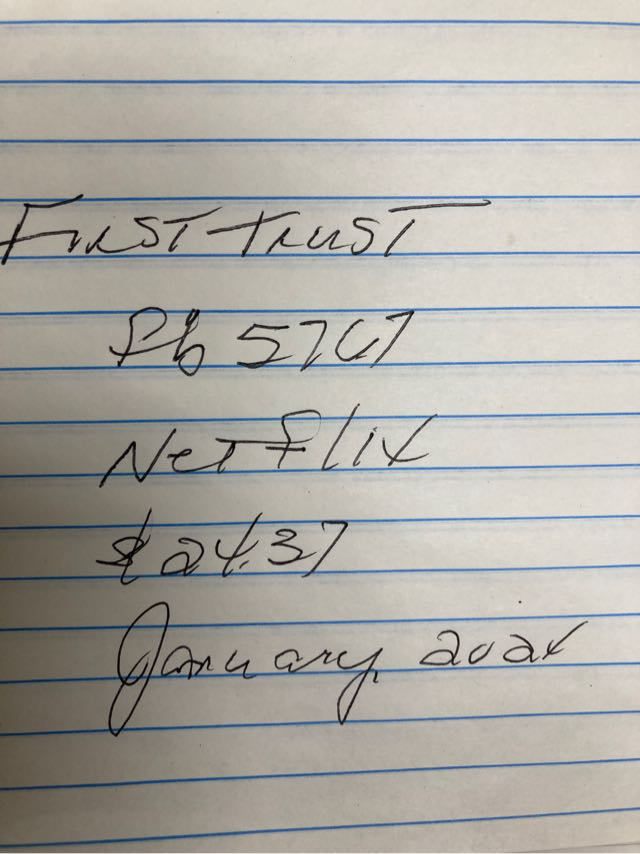 First trust
Pb 5767
Netflix
$24.37
January, 2024